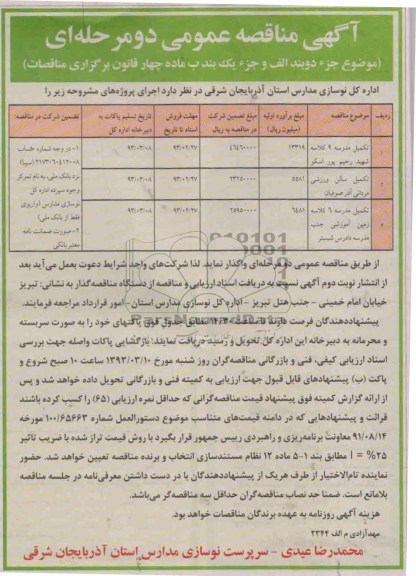 آگهی مناقصه عمومی دومرحله‌ای
(موضوع جزء دوبند الف و جزء یک بند ب ماده چهار قانون برگزاری مناقصات)
اداره کل نوسازی مدارس استان آذربایجان شرقی در نظر دارد اجرای پروژه‌های مشروحه زیر را
ردیف موضوع مناقصه مبلغ برآورد اولیه (میلیون ریال) مبلغ تضمین شرکت در مناقصه به ریال مهلت فروش اسناد تا تاریخ تاریخ تسلیم پاکات به دبیرخانه اداره کل تضمین شرکت در مناقصه:
۱ تکمیل مدرسه ۹ کلاسه شهید رحیم پور اسکو ۱۳۳۱۹ ۴۶۴۶۰۰۰۰۰ ۹۳/۰۲/۲۷ ۹۳/۰۳/۰۸
۲ تکمیل سالن ورزشی مردانی آذر صوفیان ۵۵۸۱ ۹۳/۰۲/۲۷ ۹۳/۰۳/۰۸
۳ تکمیل مدرسه ۶ کلاسه زمین آموزشی جنب مدرسه دادرس شبستر ۶۴۸۱ ۲۵۹۵۰۰۰۰۰ ۹۳/۰۲/۲۷ ۹۳/۰۳/۰۸
۱- در وجه شماره حساب
نزد بانک ملی، به نام تمرکز
وجوه سپرده اداره کل
نوسازی مدارس (واریزی
فقط از بانک ملی)
۲- صورت ضمانت نامه
معتبر بانکی
از طریق مناقصه عمومی دومرحله‌ای واگذار نماید. لذا شرکت‌های واجد شرایط دعوت بعمل می‌آید بعد
از انتشار نوبت دوم آگهی نسبت به دریافت اسناد ارزیابی و مناقصه از دستگاه مناقصه‌گذار به نشانی: تبریز
خیابان امام خمینی - جنب هتل تبریز - اداره کل نوسازی مدارس استان - امور قرارداد مراجعه فرمایند.
پیشنهاددهندگان فرصت دارند تا ساعت ۱۴:۳۰ مطابق جدول فوق پاکتهای خود را به صورت سربسته
و محرمانه به دبیرخانه این اداره کل تحویل و رسید دریافت نمایند: بازگشایی پاکات واصله جهت بررسی
اسناد ارزیابی کیفی، فنی و بازرگانی مناقصه‌گران روز شنبه مورخ ۱۳۹۳/۰۳/۱۰ ساعت ۱۰ صبح شروع و
پاکت (ب) پیشنهادهای قابل قبول جهت ارزیابی به کمیته فنی و بازرگانی تحویل داده خواهد شد و پس
از ارائه گزارش کمیته فوق پیشنهاد قیمت مناقصه‌گرانی که حداقل نمره ارزیابی (۶۵) را کسب کرده باشند
قرائت و پیشنهادهایی که در دامنه قیمت‌های متناسب موضوع دستورالعمل شماره ۱۰۰/۶۵۶۶۳ مورخه
۹۱/۰۸/۱۴ معاونت برنامه‌ریزی و راهبردی رییس جمهور قرار بگیرد با روش قیمت تراز شده با ضریب تاثیر
۲۵% = I مطابق بند ۱-۵ ماده ۱۲ نظام مستندسازی انتخاب و برنده مناقصه تعیین خواهد شد. حضور
نماینده تام‌الاختیار از طرف هریک از پیشنهاددهندگان با در دست داشتن معرفی‌نامه در جلسه مناقصه
بلامانع است. ضمنا حد نصاب مناقصه‌گران حداقل سه مناقصه‌گر می‌باشد.
هزینه آگهی روزنامه به عهده برندگان مناقصات خواهد بود.
مهدآزادی م الف ۲۳۴۴
محمدرضا عیدی - سرپرست نوسازی مدارس استان آذربایجان شرقی